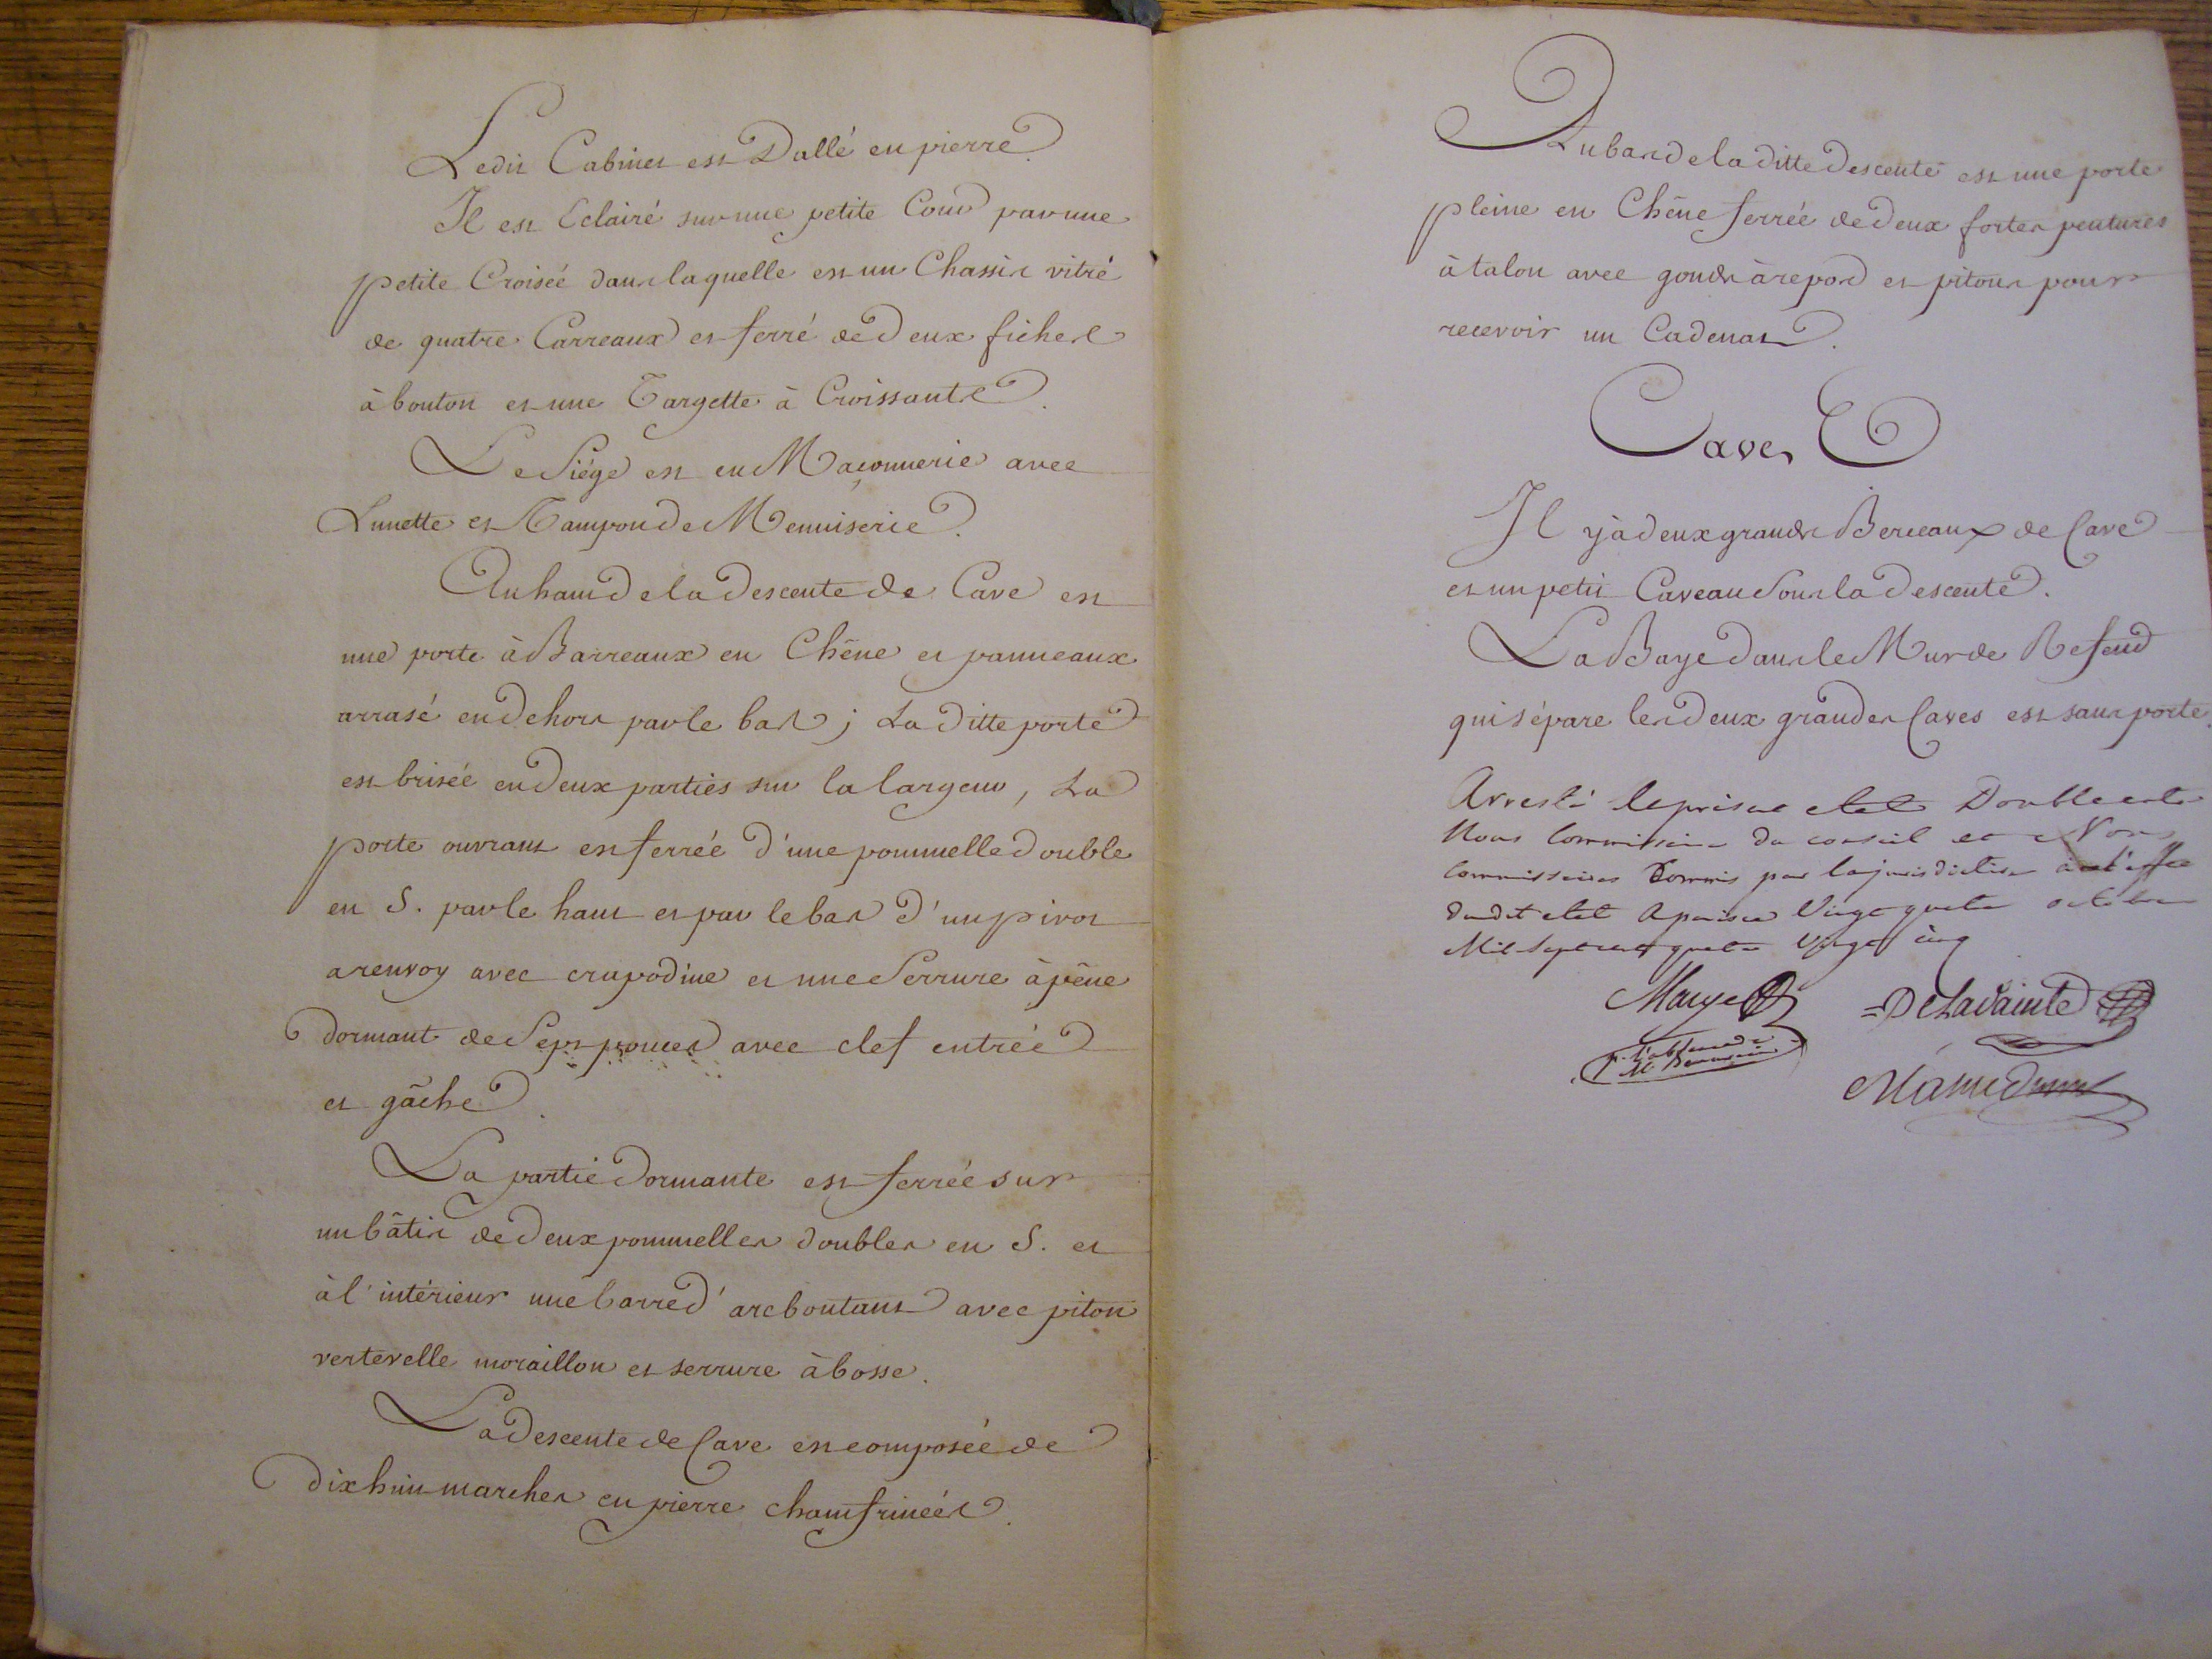 Ledit Cabinet est Dallé en pierre.
Il est Eclairé sur une petite Cour par une
petite Croisée dans laquelle est un Chassis vitré
de quatre Carreaux et ferré de deux fiches
à bouton et une Targette à Croissants.
Le Siége est en Maçonnerie avec
Lunette et Tampon de Menuiserie.
Au haut de la Descente de Cave est
une porte à Barreaux en Chêne et panneaux
arrasé en dehors par le bas ; La ditte porte
est brisée en deux parties sur la largeur, La
porte ouvrant est ferrée d'une pommelle double
en S. par le haut et par le bas d'un pivot
a renvoy avec crapodine et une Serrure à pêne
dormant de Sept pouces avec clef entrée
et gâche.
La partie Dormante est ferrée sur
un bâtis de deux pommelles doubles en S. et
à l'intérieur une barre d'arcboutant avec piton
vertevelle moraillon et serrure à bosse.
La Descente de Cave est composée de
dixhuit marches en pierre chamfrinées.
Au bas de la ditte Descente est une porte
pleine en Chêne ferrée de deux fortes pentures
à talon avec gonds à repos et pitons pour
recevoir un Cadenas.
Caves
Il y a deux grands Berceaux de Cave
et un petit Caveau Sous la Descente.
La Baye dans le Mur de Refend
qui sépare les deux grandes Caves est sans porte.
Arresté le present etat Double entre
Nous Commissaire du conseil et Nous
Commissaires Commis par la jurisdiction à l'effet
dudit etat a paris ce Vingt quatre octobre
Mil Sept cent quatre Vingt cinq
De Lavainte
p. l'absence de
M.